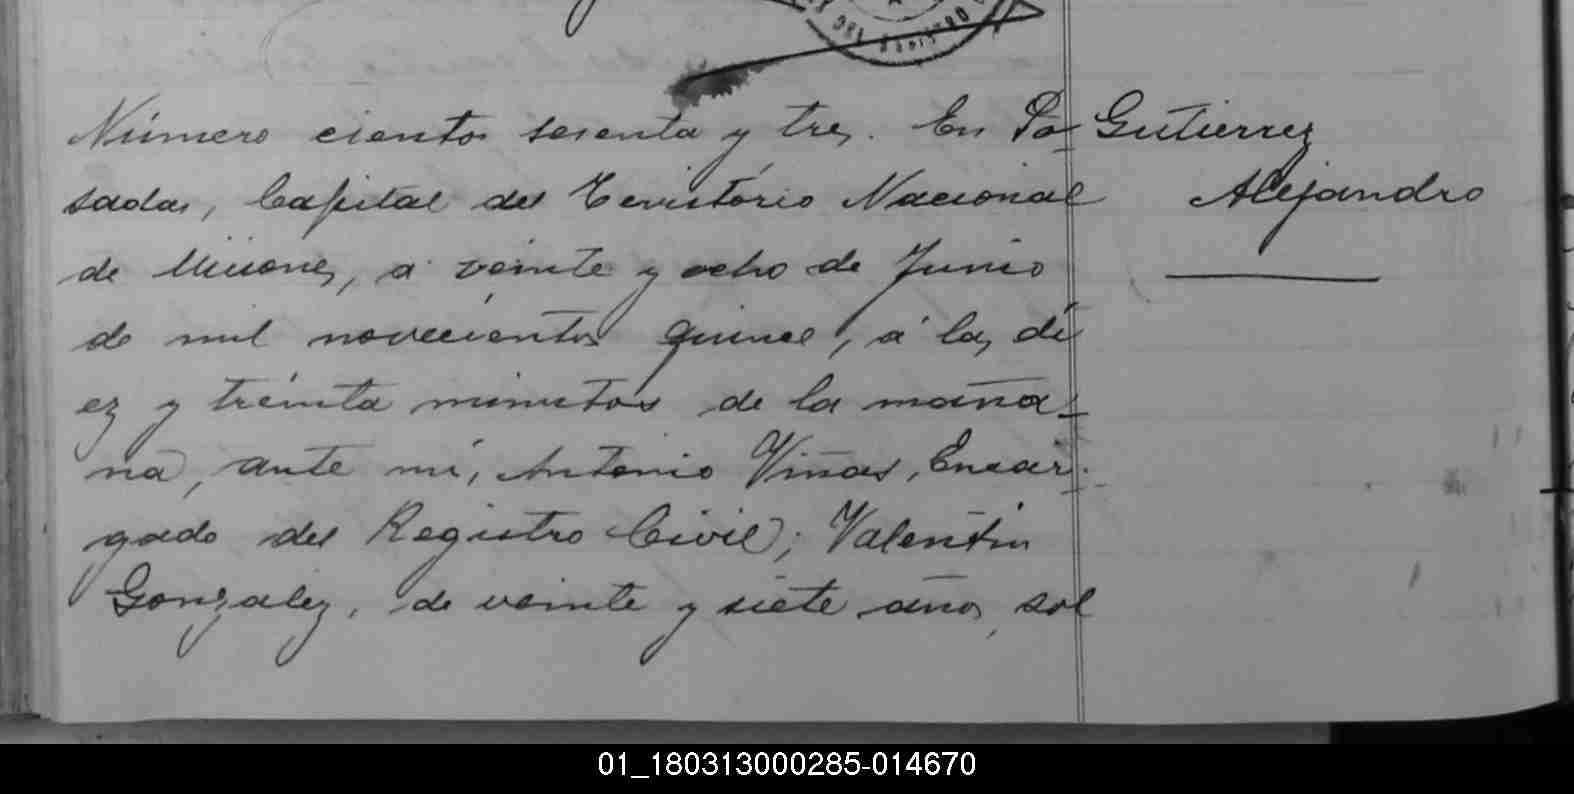 Número ciento sesenta y tres. En Po- Gutierrez
sadas, Capital del Território Nacional Alejandro
de Misiones, á veinte y ocho de Junio
de mil novecientos quince, á las di
ez y tréinta minutos de la maña-
na, ante mí, Antonio Viñas, Encar-
gado del Registro Civil; Valentin
Gonzalez, de veinte y siete años, sol
01_180313000285-014670